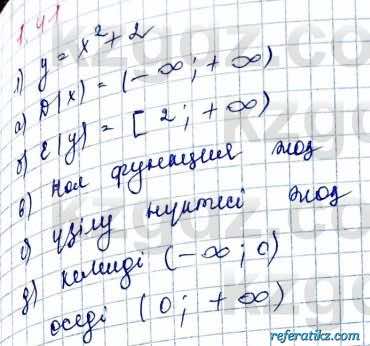 1.41
1) y = x² + 2
а) D(x) = (-∞; +∞)
б) E(y) = [2; +∞)
в) нол функция жоқ
с) үзілу нүктесі жоқ
д) кемиді (-∞; 0)
өседі (0; +∞)
kzgdz.kz
kzgdz.kz
referatikz.com